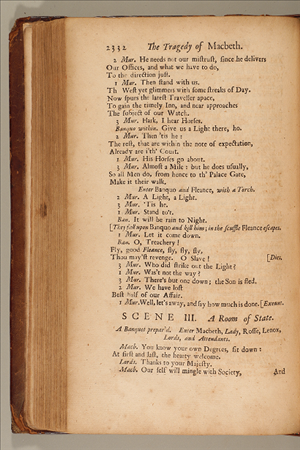 2332 The Tragedy of Macbeth.
2 Mur. He needs not our mistrust, since he delivers
Our Offices, and what we have to do,
To the direction just.
1 Mur. Then stand with us.
Th West yet glimmers with some streaks of Day.
Now spurs the latest Traveller apace,
To gain the timely Inn, and near approaches
The subject of our Watch.
3 Mur. Hark, I hear Horses.
Banquo within. Give us a Light there, ho.
2 Mur. Then 'tis he:
The rest, that are within the note of expectation,
Already are i'th' Court.
1 Mur. His Horses go about.
3 Mur. Almost a Mile: but he does usually,
So all Men do, from hence to th' Palace Gate,
Make it their walk.
Enter Banquo and Fleance, with a Torch.
2 Mur. A Light, a Light.
3 Mur. 'Tis he.
1 Mur. Stand to't.
Ban. It will be rain to Night.
[They fall upon Banquo and kill him; in the scuffle Fleance escapes.
1 Mur. Let it come down.
Ban. O, Treachery!
Fly, good Fleance, fly, fly, fly,
Thou may'st revenge. O Slave! [Dies.
3 Mur. Who did strike out the Light?
1 Mur. Was't not the way?
3 Mur. There's but one down; the Son is fled.
2 Mur. We have lost
Best half of our Affair.
1 Mur. Well, let's away, and say how much is done. [Exeunt.
SCENE III. A Room of State.
A Banquet prepar'd. Enter Macbeth, Lady, Rosse, Lenox,
Lords, and Attendants.
Macb. You know your own Degrees, sit down:
At first and last, the hearty welcome.
Lords. Thanks to your Majesty.
Macb. Our self will mingle with Society,
And